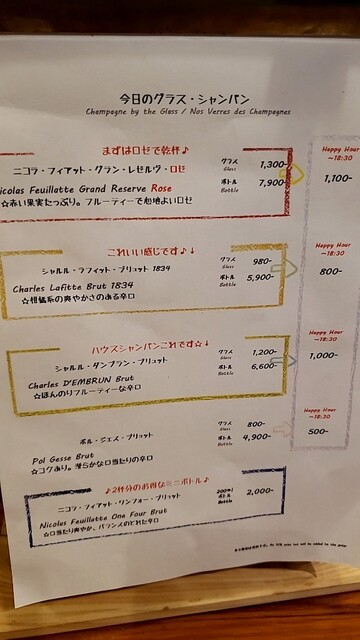 今日のグラス・シャンパン
Champagne by the Glass / Nos Verres des Champagnes
まずはロゼで乾杯♪
ニコラ・フィアット・グラン・レゼルヴ・ロゼ
グラス Glass 1,300-
icolas Feuillatte Grand Reserve Rose
ボトル Bottle 7,900-
☆赤い果実たっぷり。フルーティーで心地よいロゼ
Happy Hour
~18:30
1,100-
これいい感じです♪↓
シャルル・ラフィット・ブリュット 1834
グラス Glass 980-
Charles Lafitte Brut 1834
ボトル Bottle 5,900-
☆柑橘系の爽やかさのある辛口
Happy Hour
~18:30
800-
ハウスシャンパンこれです☆↓
シャルル・ダンブラン・ブリュット
グラス Glass 1,200-
Charles D'EMBRUN Brut
ボトル Bottle 6,600-
☆ほんのりフルーティーな辛口
Happy Hour
~18:30
1,000-
ポル・ジェス・ブリュット
グラス Glass 800-
Pol Gesse Brut
ボトル Bottle 4,900-
☆コクあり。滑らかな口当たりの辛口
Happy Hour
~18:30
500-
♪2杯分のお得なミニボトル♪
ニコラ・フィアット・ワンフォー・ブリュット
200ml ボトル Bottle 2,000-
Nicolas Feuillatte One Four Brut
☆口当たり爽やか、バランスのとれた辛口